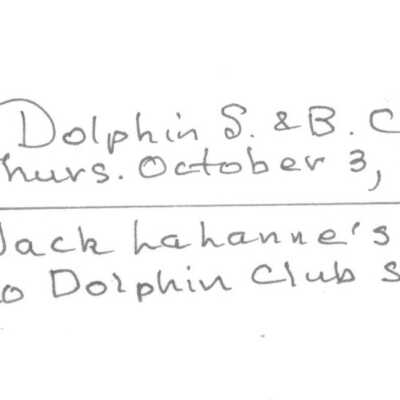 Dolphin S. & B. C
hurs. October 3,
Jack Lahanne's
o Dolphin Club S